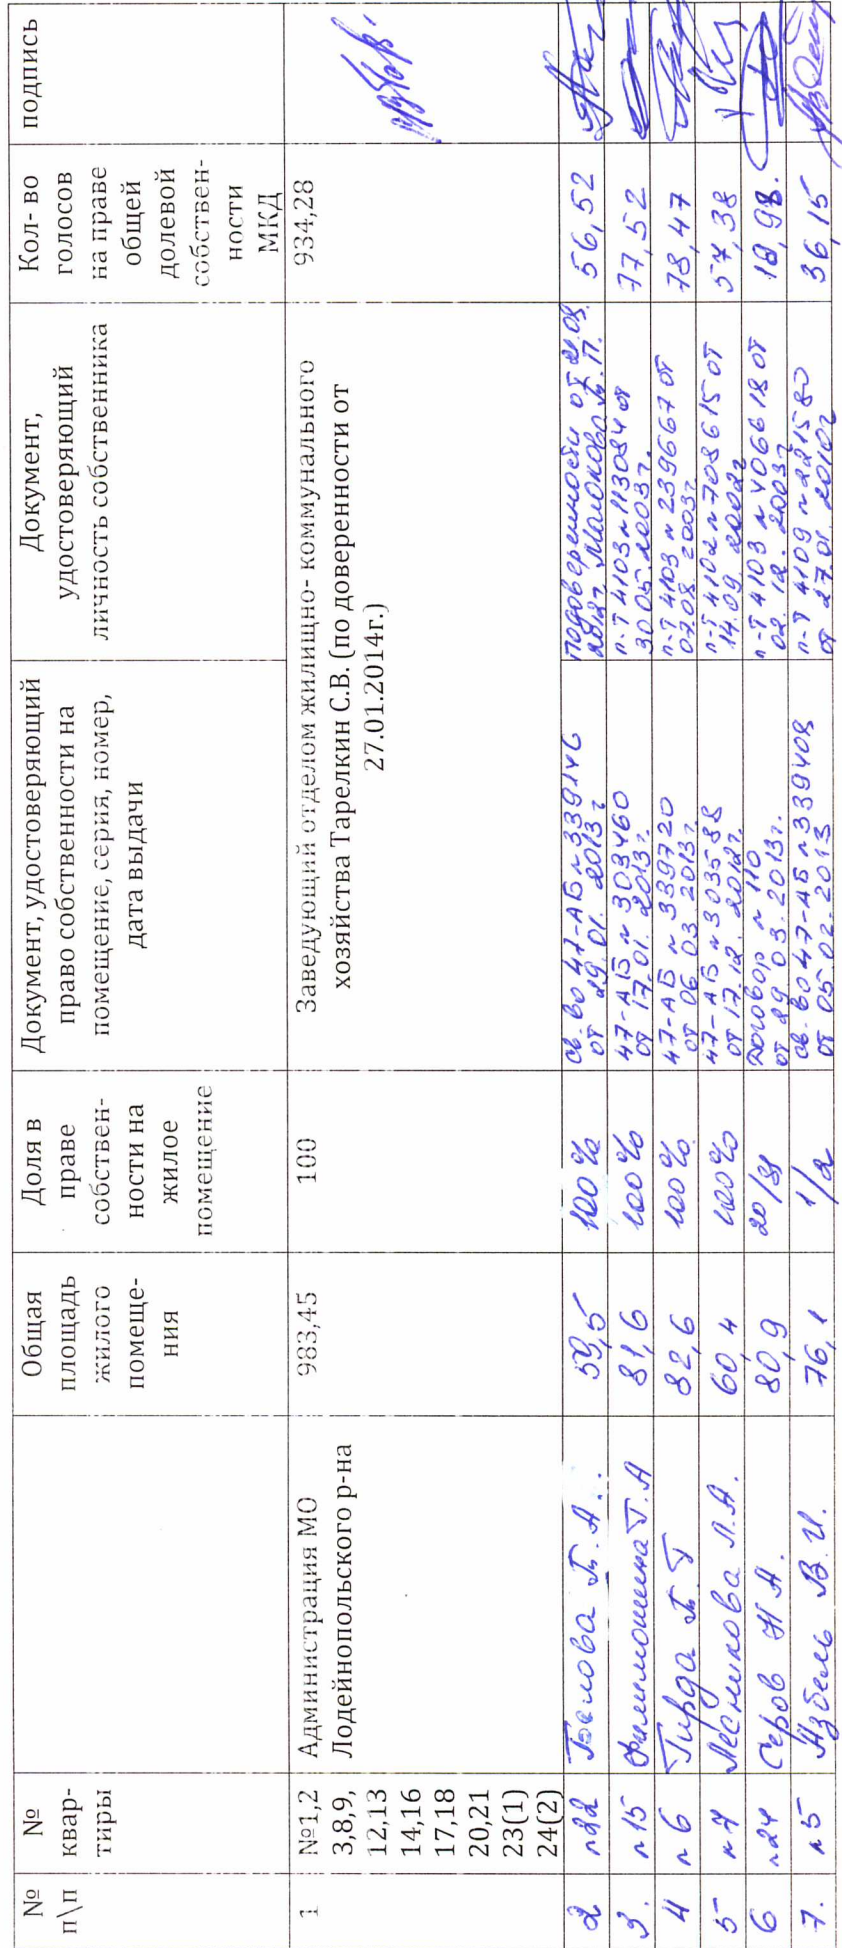 № п\п
№ квар-
тиры
Общая
площадь
жилого
помеще-
ния
Доля в
праве
собствен-
ности на
жилое
помещение
Документ, удостоверяющий
право собственности на
помещение, серия, номер,
дата выдачи
Документ,
удостоверяющий
личность собственника
Кол- во
голосов
на праве
общей
долевой
собствен-
ности
МКД
подпись
1
№1,2
3,8,9,
12,13
14,16
17,18
20,21
23(1)
24(2)
Администрация МО
Лодейнопольского р-на
983,45
100
Заведующий отделом жилищно- коммунального
хозяйства Тарелкин С.В. (по доверенности от
27.01.2014г.)
934,28
2 №22 59,5 100%
св-во 47-АБ №339146
от 29.01.2013г
по доверенности от
56,52
3. №15 Филимошина Т.А 81,6 100%
47-АБ №303460
от 17.01.2013г.
п-т 4103 №113084 от
30.05.2003г.
77,52
4 №6 82,6 100%
47-АБ №339720
от 06 03 2013г.
п-т 4103 №239667 от
07.08.2003г.
78,47
5 №7 Лесникова Л.А. 60,4 100%
47-АБ №303588
от 17.12.2012г.
п-т 4102 №708615 от
14.09.2002г
57,38
6 №24 Серов Н А. 80,9 20/81
Договор №110
от 29 03.2013г.
п-т 4103 №406618 от
02.12.2003г
18,98.
7. №5 Азбель В.И. 76,1 1/2
св-во 47-АБ №339408
от 05.02.2013
п-т 4109 №221580
от 27.01.2010г
36,15